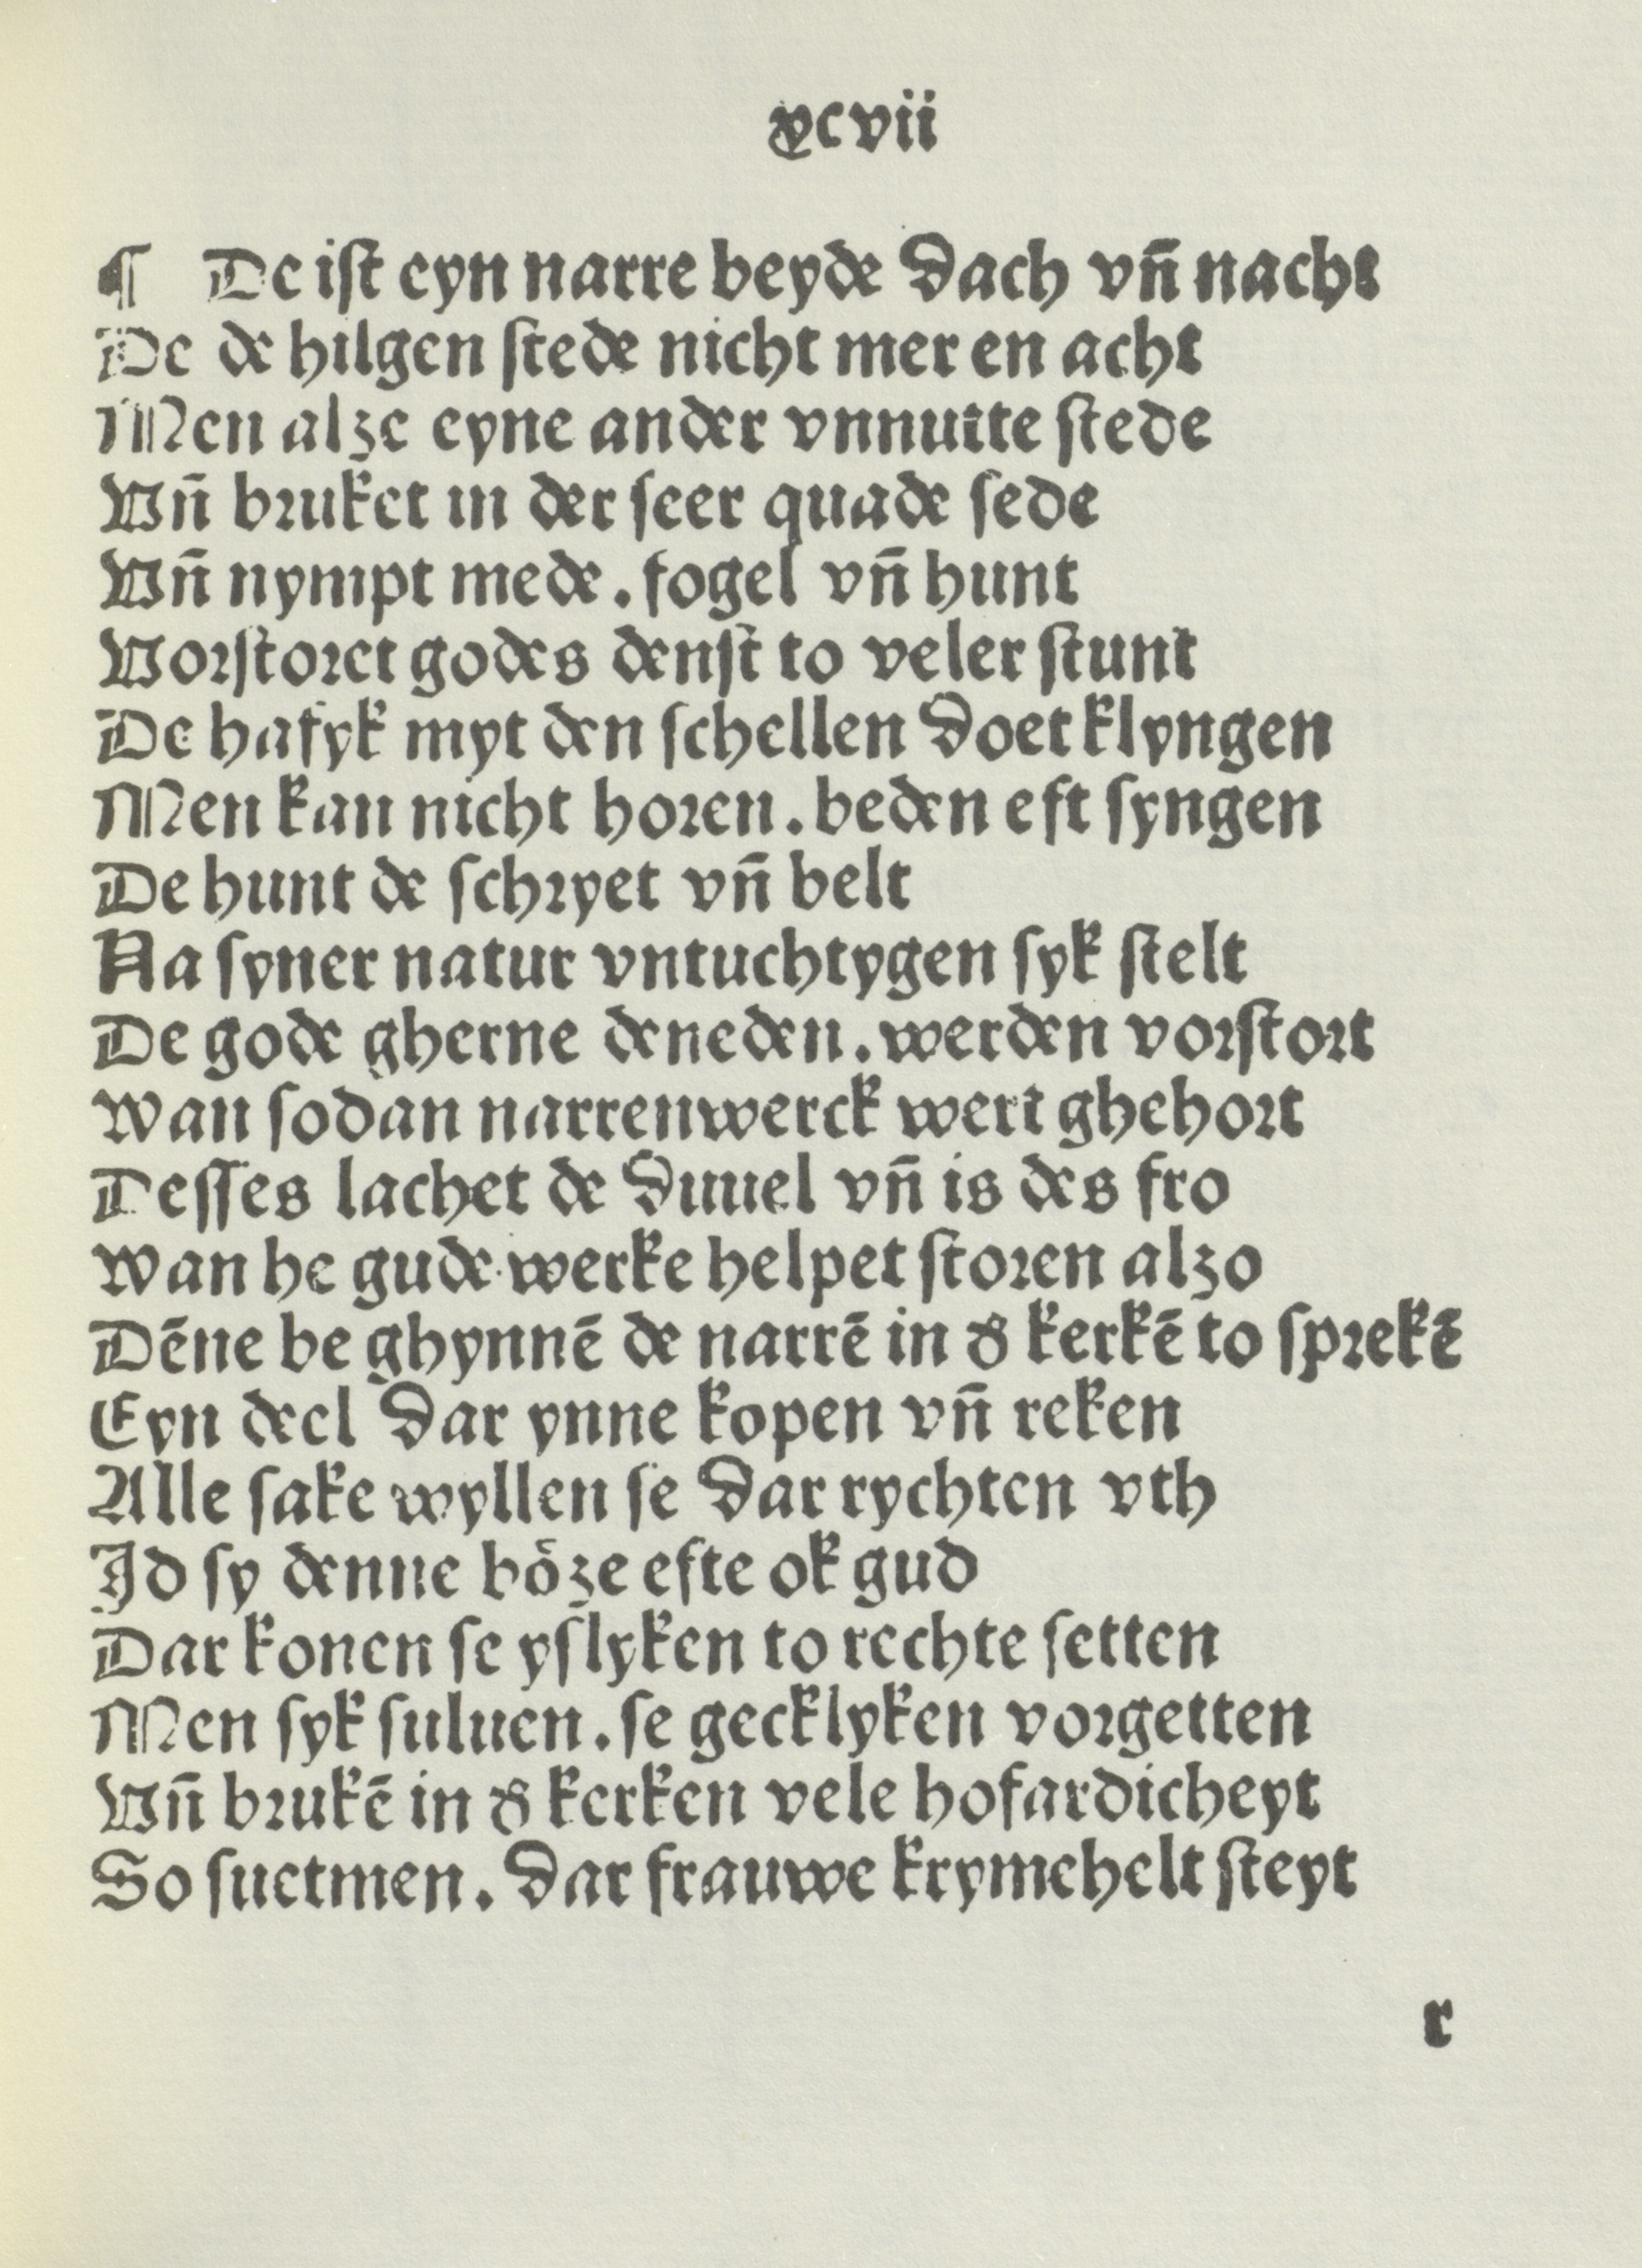 xcvii
¶ De iſt eyn narre beyde dach vñ nacht
De de hilgen ſtede nicht mer en acht
Men alze eyne ander vnnutte ſtede
Vñ bruket in der ſeer quade ſede
Vñ nympt mede. fogel vñ hunt
Vorſtoret godes denſt to veler ſtunt
De hafyk myt den ſchellen doet klyngen
Men kan nicht horen. beden eft ſyngen
De hunt de ſchryet vñ belt
Na ſyner natur vntuchtygen ſyk ſtelt
De gode gherne deneden. werden vorſtort
Wan ſodan narrenwerck wert ghehort
Deſſes lachet de duuel vñ is des fro
Wan he gude werke helpet ſtoren alzo
Dēne be ghynnē de narrē in d' kerkē to ſprekē
Eyn deel dar ynne kopen vñ reken
Alle ſake wyllen ſe dar rychten vth
Id ſy denne boͤze efte ok gud
Dar konen ſe yſlyken to rechte ſetten
Men ſyk ſuluen. ſe gecklyken vorgetten
Vñ brukē in d' kerken vele hofardicheyt
So ſuetmen. dar frauwe krymehelt ſteyt
r